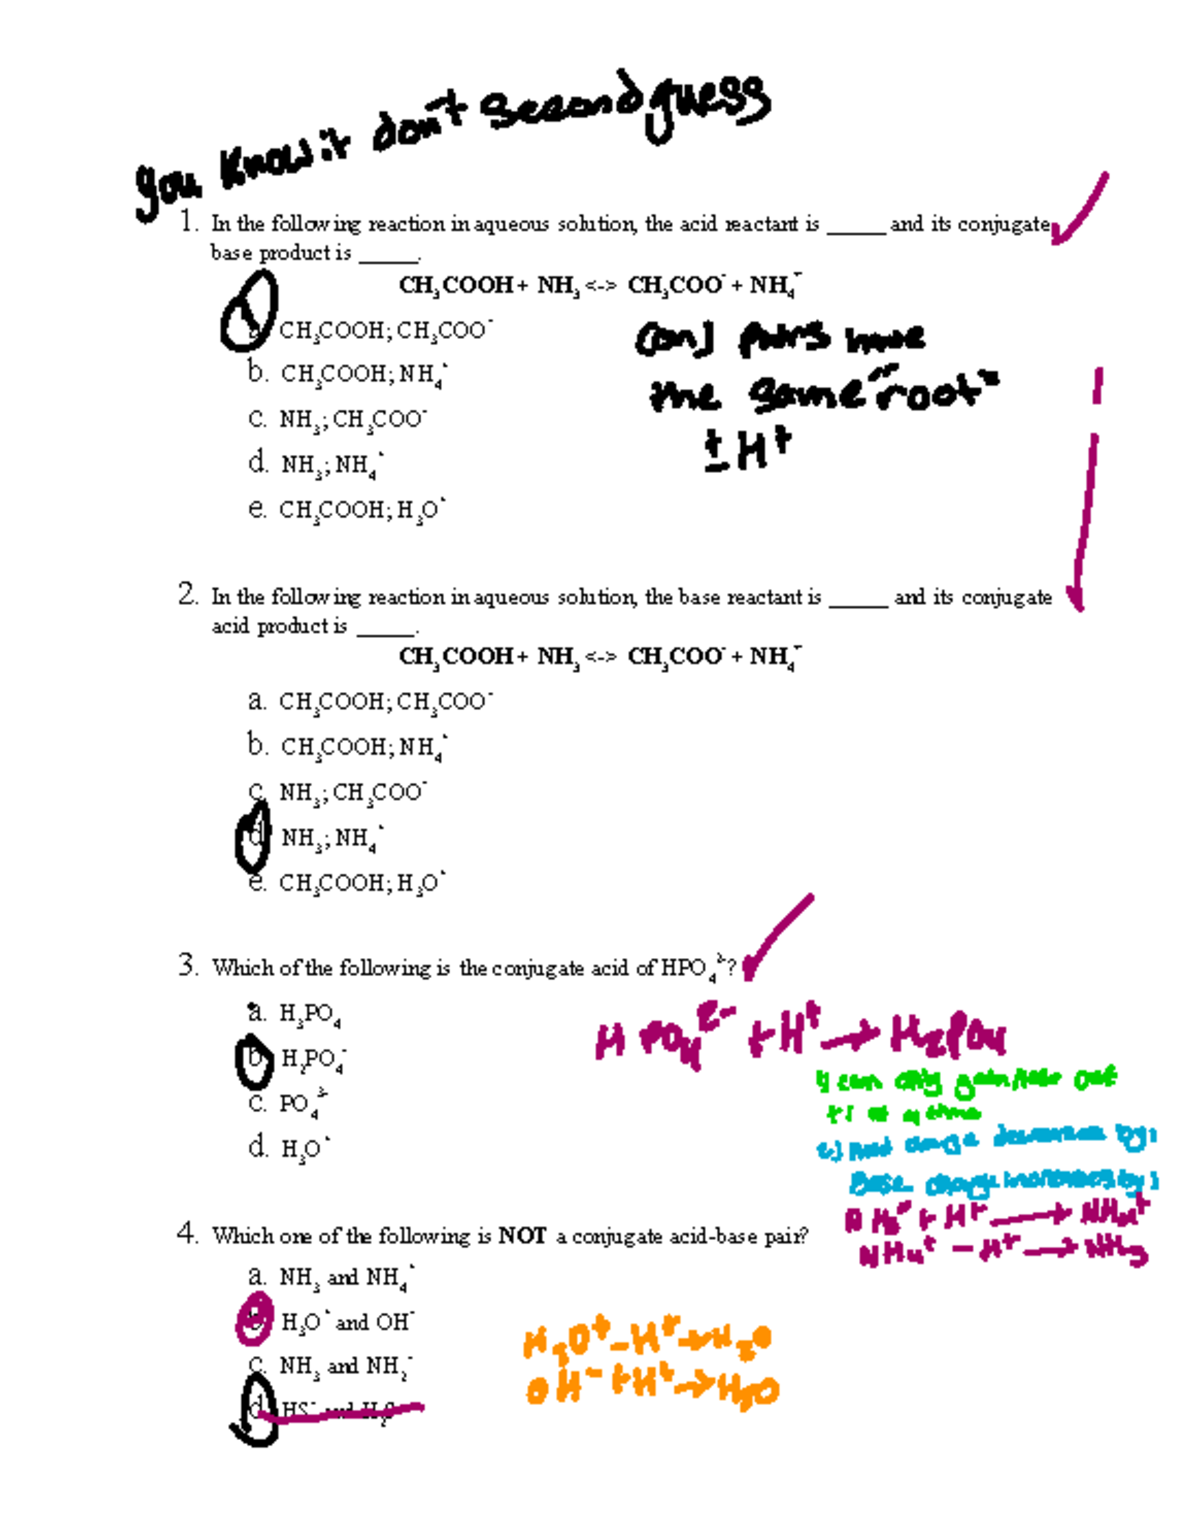 you know it don't second guess
1. In the following reaction in aqueous solution, the acid reactant is _____ and its conjugate
base product is _____.
CH₃COOH + NH₃ <-> CH₃COO⁻ + NH₄⁺
a. CH₃COOH; CH₃COO⁻
Conj pairs have
b. CH₃COOH; NH₄⁺
the same "root"
c. NH₃; CH₃COO⁻
± H⁺
d. NH₃; NH₄⁺
e. CH₃COOH; H₃O⁺
2. In the following reaction in aqueous solution, the base reactant is _____ and its conjugate
acid product is _____.
CH₃COOH + NH₃ <-> CH₃COO⁻ + NH₄⁺
a. CH₃COOH; CH₃COO⁻
b. CH₃COOH; NH₄⁺
c. NH₃; CH₃COO⁻
d. NH₃; NH₄⁺
e. CH₃COOH; H₃O⁺
3. Which of the following is the conjugate acid of HPO₄²⁻?
a. H₃PO₄
HPO₄²⁻ + H⁺ → H₂PO₄
b. H₂PO₄⁻
can only gain
c. PO₄³⁻
at a time
d. H₃O⁺
charge decreases by 1
Base charge increases by 1
NH₃ + H⁺ → NH₄⁺
NH₄⁺ - H⁺ → NH₃
4. Which one of the following is NOT a conjugate acid-base pair?
a. NH₃ and NH₄⁺
b. H₃O⁺ and OH⁻
H₃O⁺ - H⁺ → H₂O
c. NH₃ and NH₂⁻
OH⁻ + H⁺ → H₂O
d. HS⁻ and H₂S